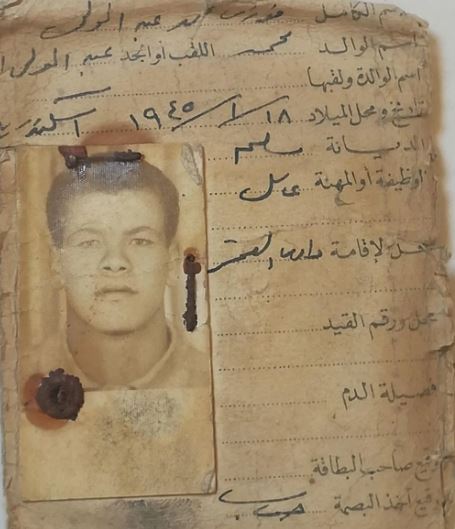 اسم الكامل محمد عبد المولى
اسم الوالد محمد اللقب أو الجد عبد المولى
اسم الوالدة ولقبها
تاريخ ومحل الميلاد ١٨/١/١٩٤٥
الديانة مسلم
الوظيفة أو المهنة عامل
محل لإقامة
محل ورقم القيد
فصيلة الدم
توقيع صاحب البطاقة
توقيع آخذ البصمة